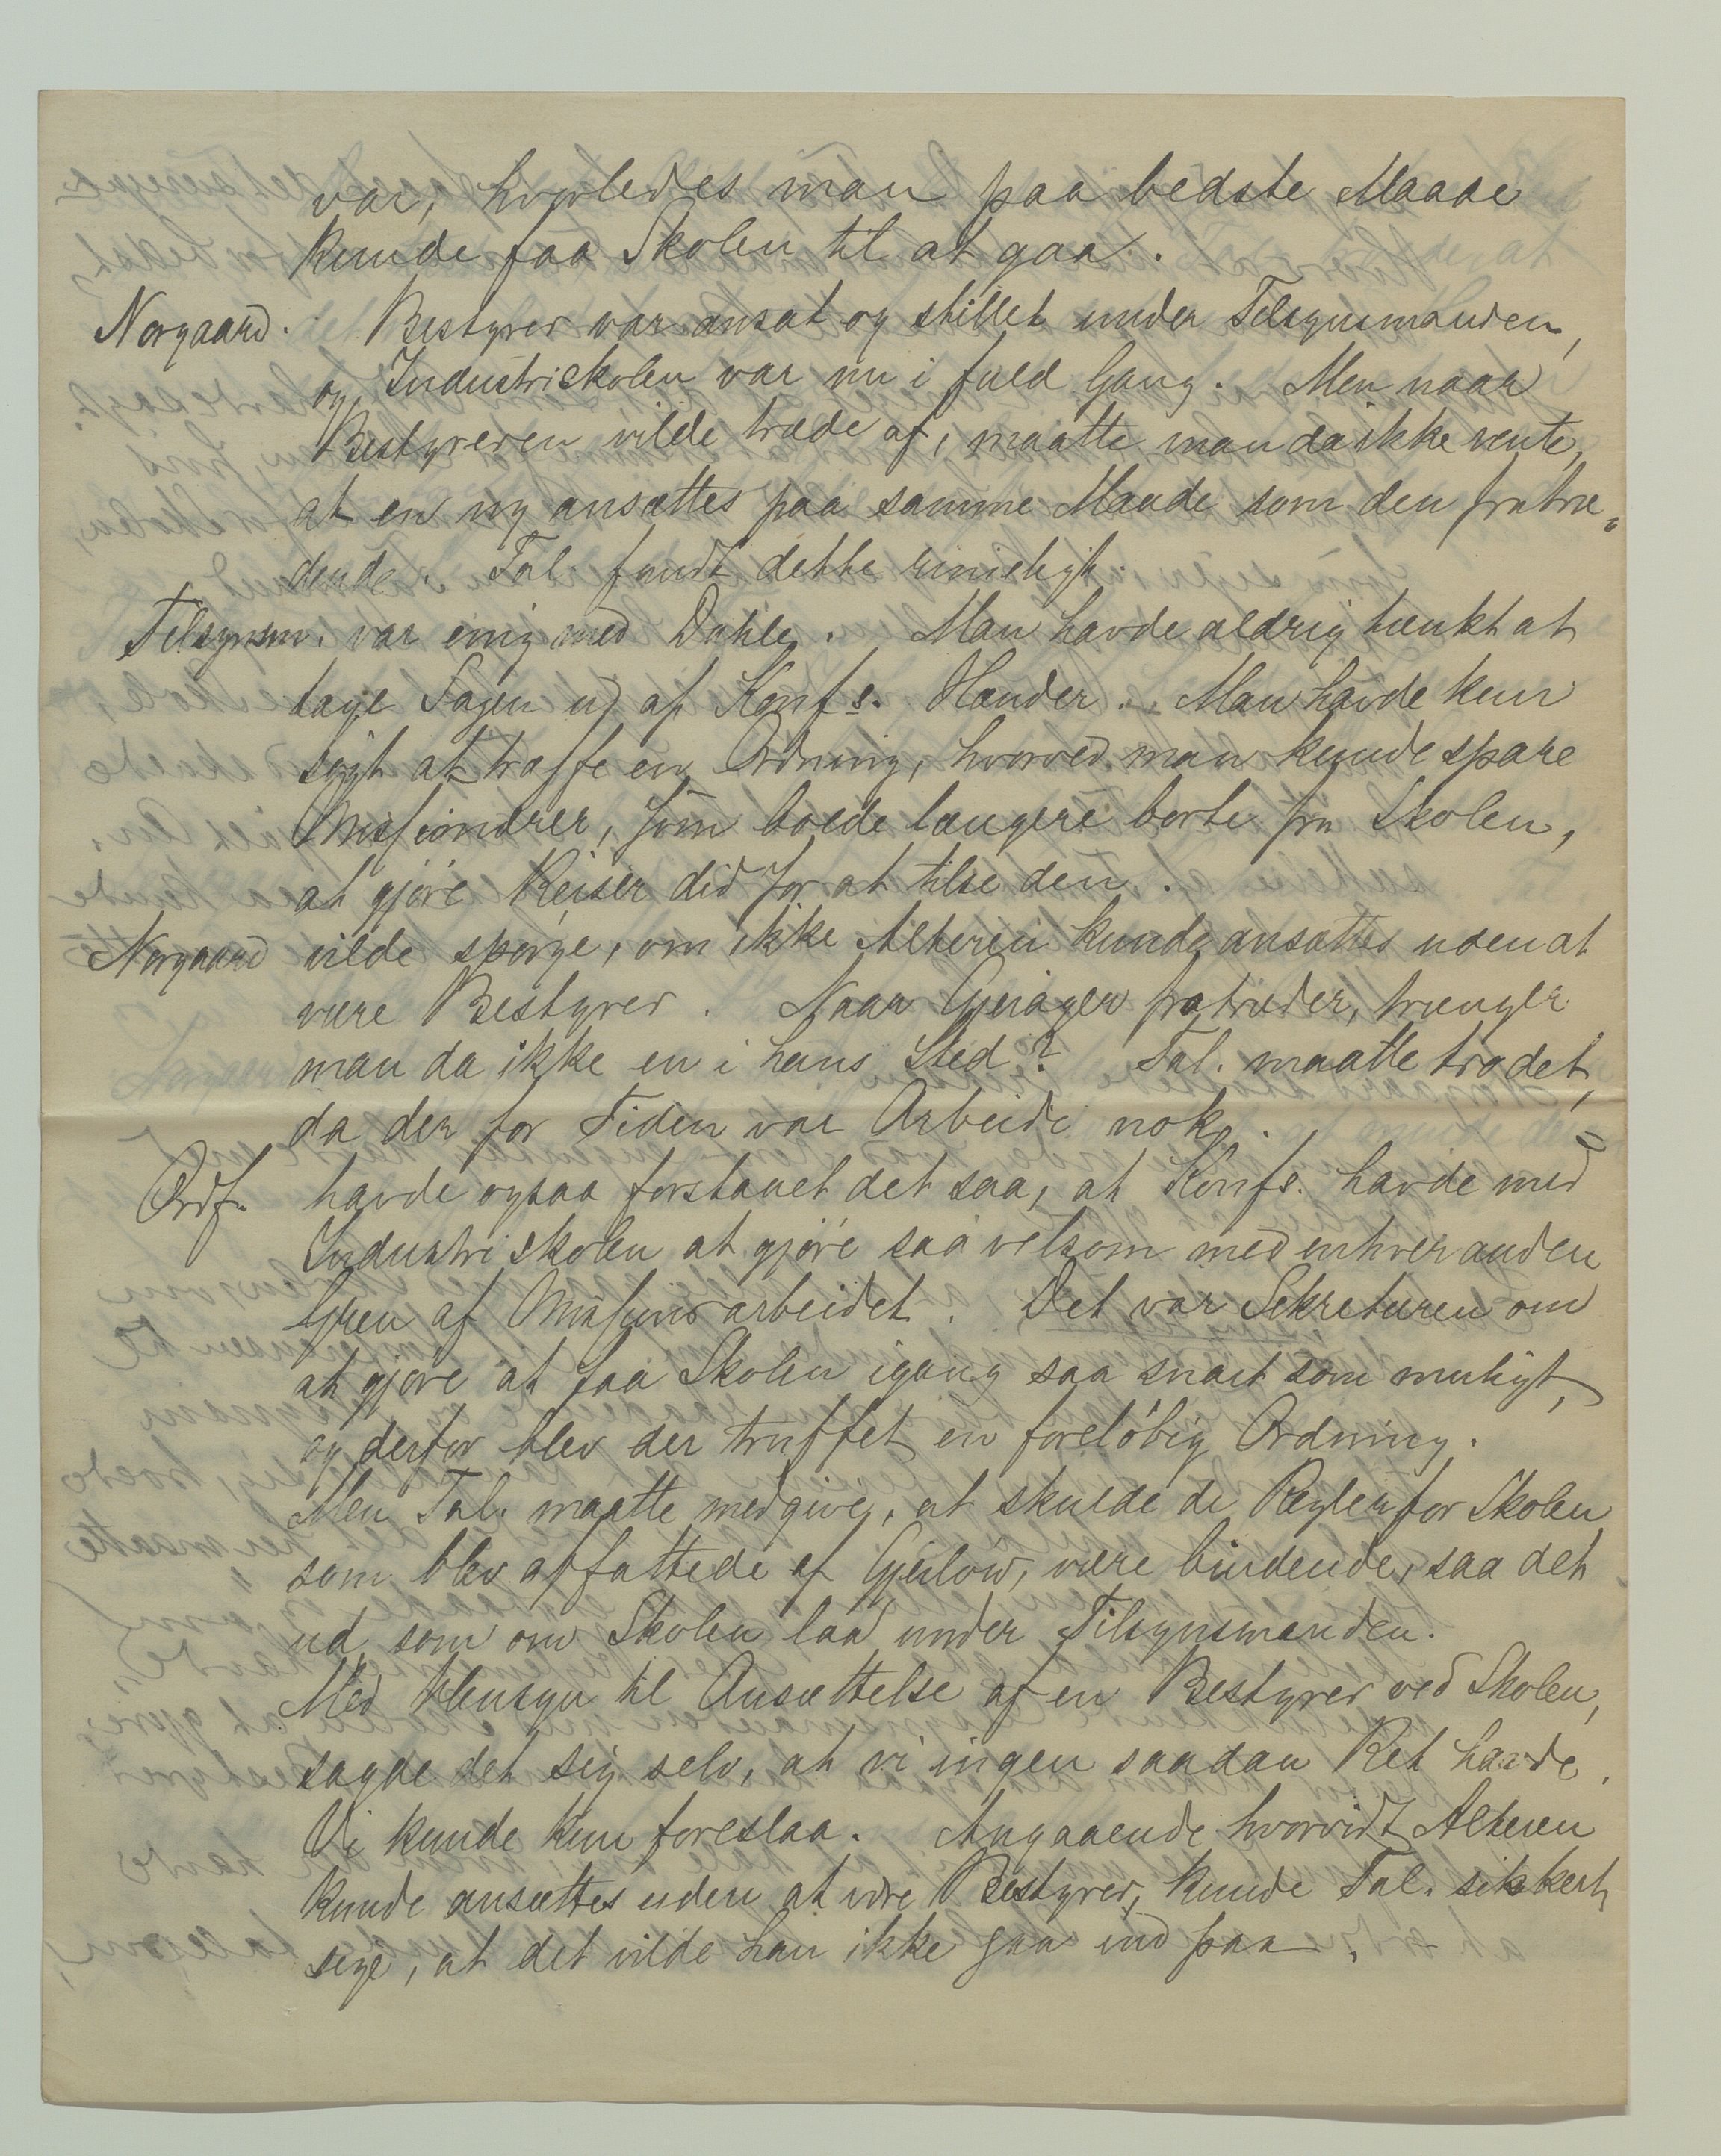 var, hvorledes man paa bedste Maade
kunde faa Skolen til at gaa.
Norgaard. Bestyrer var ansat og stillet under Tilsynsmanden,
og Industriskolen var nu i fuld Gang. Men naar
Bestyreren vilde træde af, maatte man da ikke vente,
at en ny ansættes paa samme Maade som den fratræ„
dende. Tal. fandt dette rimeligt.
Tilsynsm. var enig med Dahle. Man havde aldrig tænkt at
tage Sagen ud af Konfs. Hænder. Man havde kun
søgt at træffe en Ordning, hvorved man kunde spare
Missionærer, som boede længere borte fra Skolen,
at gjøre Reiser did for at tilse den.
Norgaard vilde spørge, om ikke Alteren kunde ansættes uden at
være Bestyrer. Naar Gjerager fratræder, trænger
man da ikke en i hans Sted? Tal. maatte tro det,
da der for Tiden var Arbeide nok.
Ordf. havde ogsaa forstaaet det saa, at Konfs. havde med
Industriskolen at gjøre saavelsom med enhver anden
Gren af Missionsarbeidet. Det var Sekretæren om
at gjøre at faa Skolen igang saa snart som muligt,
og derfor blev der truffet en foreløbig Ordning.
Men Tal. maatte medgive, at skulde de Regler for Skolen
som blev affattede af Gjerløw, være bindende, saa det
ud som om Skolen laa under Tilsynsmanden.
Med Hensyn til Ansættelse af en Bestyrer ved Skolen,
sagde det sig selv, at vi ingen saadan Ret havde.
Vi kunde kun foreslaa. Angaaende hvorvidt Alteren
kunde ansættes uden at være Bestyrer, kunde Tal. sikkert
sige, at det vilde han ikke gaa ind paa.